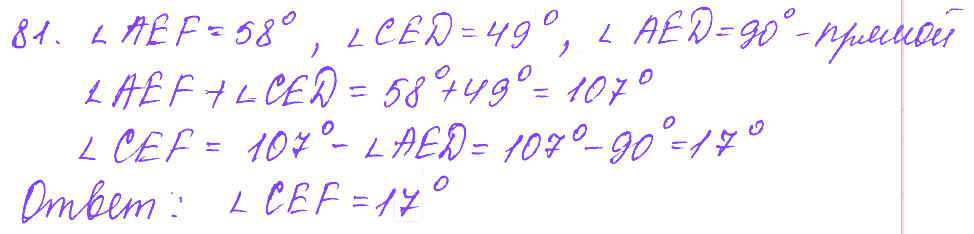 81. ∠AEF = 58°, ∠CED = 49°, ∠AED = 90° - прямой
∠AEF + ∠CED = 58° + 49° = 107°
∠CEF = 107° - ∠AED = 107° - 90° = 17°
Ответ: ∠CEF = 17°